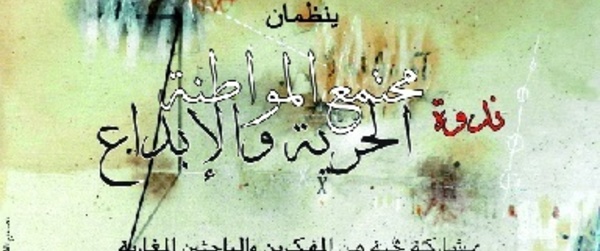 ينظمان
ندوة
مجتمع المواطنة
الحرية والإبداع
بمشاركة نخبة من المفكرين والباحثين المغاربة